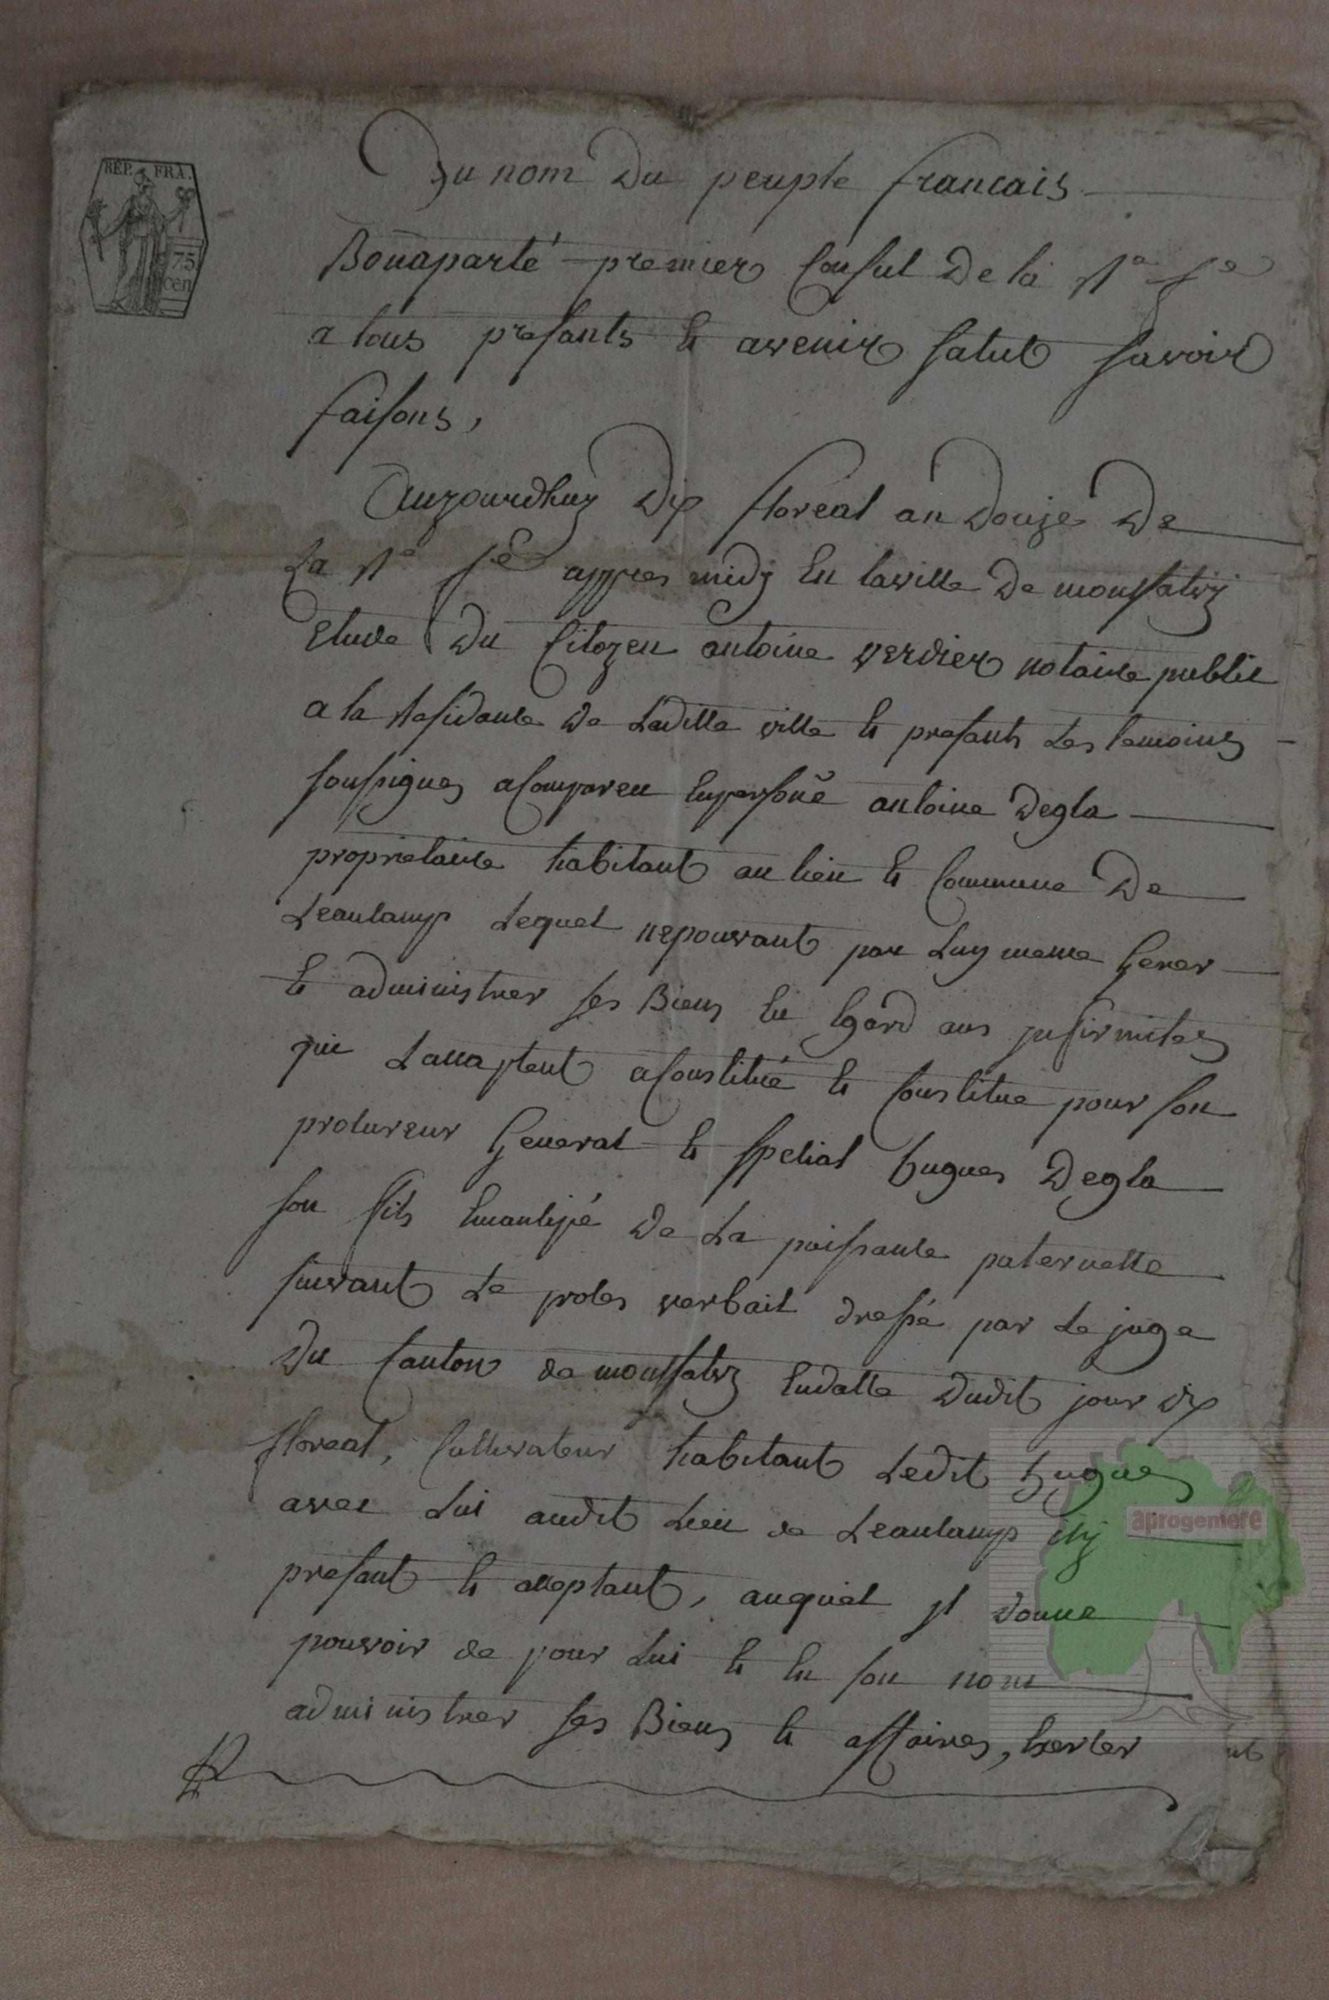 RÉP. FRA.
75
cen
Au nom Du peuple francais
Bonaparté premier Consul De la Re fse
a tous presants et avenir salut savoir
faisons,
Aujourdhuy Dix floreal an Douze De
La Re fse appres midy En laville De monsalvy
Etude Du Citoyen antoine verdier notaire public
a la Residance de Laditte ville et presants Les temoins
soussignes a Compareu En personē antoine Degla
proprietaire habitant au lieu et Commune De
Leaucamp Lequel nepouvant par Luy meme Gerer
et administrer ses Biens En Egard aus jnfirmites
qui Laccaptent a Constitué et Constitue pour son
procureur General et special hugues Degla
son fils Emancipé de La puissance paternelle
suivant Le proces verbail dressé par Le juge
Du Canton de monsalvy Endatte Dudit jour dix
floreal, Cultivateur habitant Ledit hugues
avec Lui audit Lieu de Leaucamp icy
aprogemere
presant et acceptant, auquel jl donne
pouvoir de pour Lui et En son nom
administrer ses Biens et affaires, Exercer